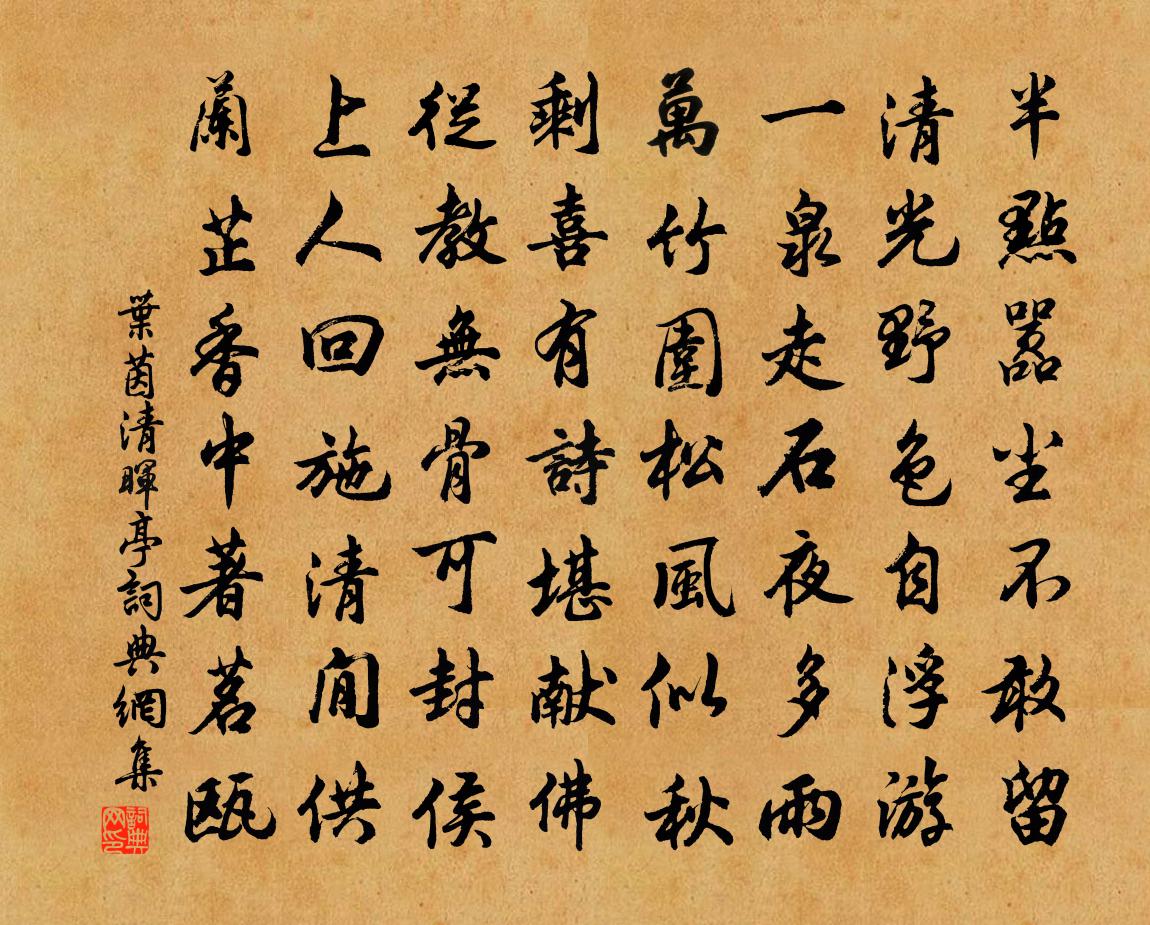 半點嚣尘不敢留
清光野色自浮游
一泉走石夜多雨
萬竹圍松風似秋
剩喜有詩堪献佛
從教無骨可封侯
上人回施清閒供
蘭芷香中著茗甌
葉茵清暉亭詞典網集
詞典网印